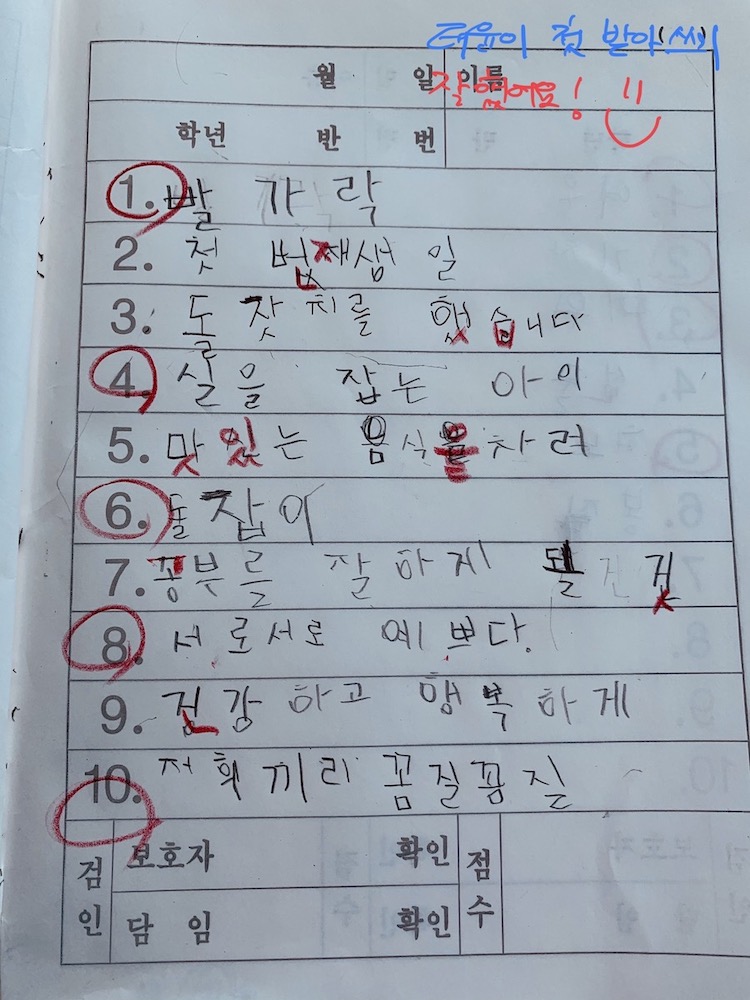 더윤이 첫 받아쓰기
월 일 이름
잘했어요!
학년 반 번
1. 발가락
2. 첫 번째 생일
3. 돌잔치를 했습니다
4. 실을 잡는 아이
5. 맛있는 음식을 차려
6. 돌잡이
7. 공부를 잘하게 될 건 것
8. 서로서로 예쁘다.
9. 건강하고 행복하게
10. 저희끼리 꼼질꼼질
검인 보호자 확인 점수
담 임 확인